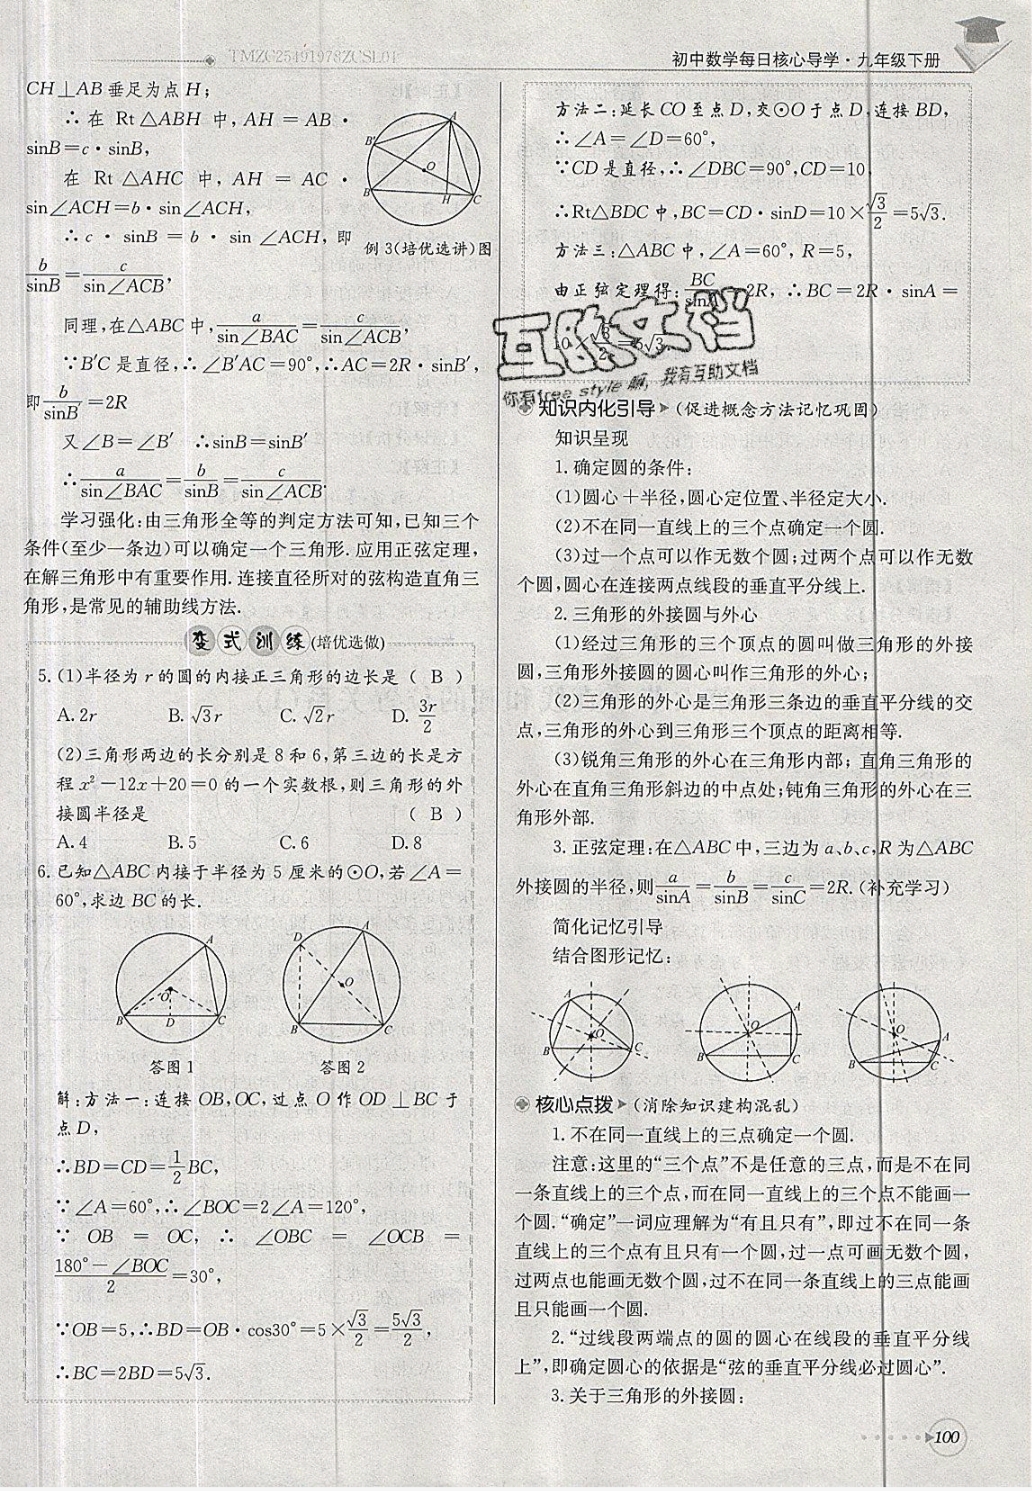 TMZC25491978ZCSL01
初中数学每日核心导学·九年级下册
CH⊥AB垂足为点H；
∴在 Rt△ABH 中，AH＝AB·
sinB＝c·sinB，
在 Rt△AHC 中，AH＝AC·
sin∠ACH＝b·sin∠ACH，
∴c·sinB＝b·sin∠ACH，即
b/sinB＝c/sin∠ACB，
A
B′
O
B
H
C
例3(培优选讲)图
同理，在△ABC中，a/sin∠BAC＝c/sin∠ACB，
∵B′C是直径，∴∠B′AC＝90°，∴AC＝2R·sinB′，
即b/sinB′＝2R
又∠B＝∠B′ ∴sinB＝sinB′
∴a/sin∠BAC＝b/sinB＝c/sin∠ACB.
学习强化：由三角形全等的判定方法可知，已知三个
条件(至少一条边)可以确定一个三角形. 应用正弦定理，
在解三角形中有重要作用. 连接直径所对的弦构造直角三
角形，是常见的辅助线方法.
变式训练(培优选做)
5. (1)半径为r的圆的内接正三角形的边长是 ( B )
A. 2r B. √3r C. √2r D. 3r/2
(2)三角形两边的长分别是8和6，第三边的长是方
程x²－12x＋20＝0的一个实数根，则三角形的外
接圆半径是 ( B )
A. 4 B. 5 C. 6 D. 8
6. 已知△ABC内接于半径为5厘米的⊙O，若∠A＝
60°，求边BC的长.
A
O
B D C
D A
O
B C
答图1 答图2
解：方法一：连接OB，OC，过点O作OD⊥BC于
点D，
∴BD＝CD＝1/2BC，
∵∠A＝60°，∴∠BOC＝2∠A＝120°，
∵ OB ＝ OC，∴ ∠OBC ＝ ∠OCB ＝
180°－∠BOC/2＝30°，
∵OB＝5，∴BD＝OB·cos30°＝5×√3/2＝5√3/2，
∴BC＝2BD＝5√3.
方法二：延长CO至点D，交⊙O于点D，连接BD，
∴∠A＝∠D＝60°，
∵CD是直径，∴∠DBC＝90°，CD＝10，
∴Rt△BDC中，BC＝CD·sinD＝10×√3/2＝5√3.
方法三：△ABC中，∠A＝60°，R＝5，
由正弦定理得：BC/sinA＝2R，∴BC＝2R·sinA＝
10×√3/2＝5√3.
互助文档
你有free style嘛，我有互助文档
知识内化引导(促进概念方法记忆巩固)
知识呈现
1. 确定圆的条件：
(1)圆心＋半径，圆心定位置、半径定大小.
(2)不在同一直线上的三个点确定一个圆.
(3)过一个点可以作无数个圆；过两个点可以作无数
个圆，圆心在连接两点线段的垂直平分线上.
2. 三角形的外接圆与外心
(1)经过三角形的三个顶点的圆叫做三角形的外接
圆，三角形外接圆的圆心叫作三角形的外心；
(2)三角形的外心是三角形三条边的垂直平分线的交
点，三角形的外心到三角形三个顶点的距离相等.
(3)锐角三角形的外心在三角形内部；直角三角形的
外心在直角三角形斜边的中点处；钝角三角形的外心在三
角形外部.
3. 正弦定理：在△ABC中，三边为a、b、c，R为△ABC
外接圆的半径，则a/sinA＝b/sinB＝c/sinC＝2R. (补充学习)
简化记忆引导
结合图形记忆：
A
O
B C
A
O
B C
O
A
B C
核心点拨(消除知识建构混乱)
1. 不在同一直线上的三点确定一个圆.
注意：这里的“三个点”不是任意的三点，而是不在同
一条直线上的三个点，而在同一直线上的三个点不能画一
个圆. “确定”一词应理解为“有且只有”，即过不在同一条
直线上的三个点有且只有一个圆，过一点可画无数个圆，
过两点也能画无数个圆，过不在同一条直线上的三点能画
且只能画一个圆.
2. “过线段两端点的圆的圆心在线段的垂直平分线
上”，即确定圆心的依据是“弦的垂直平分线必过圆心”.
3. 关于三角形的外接圆：
100